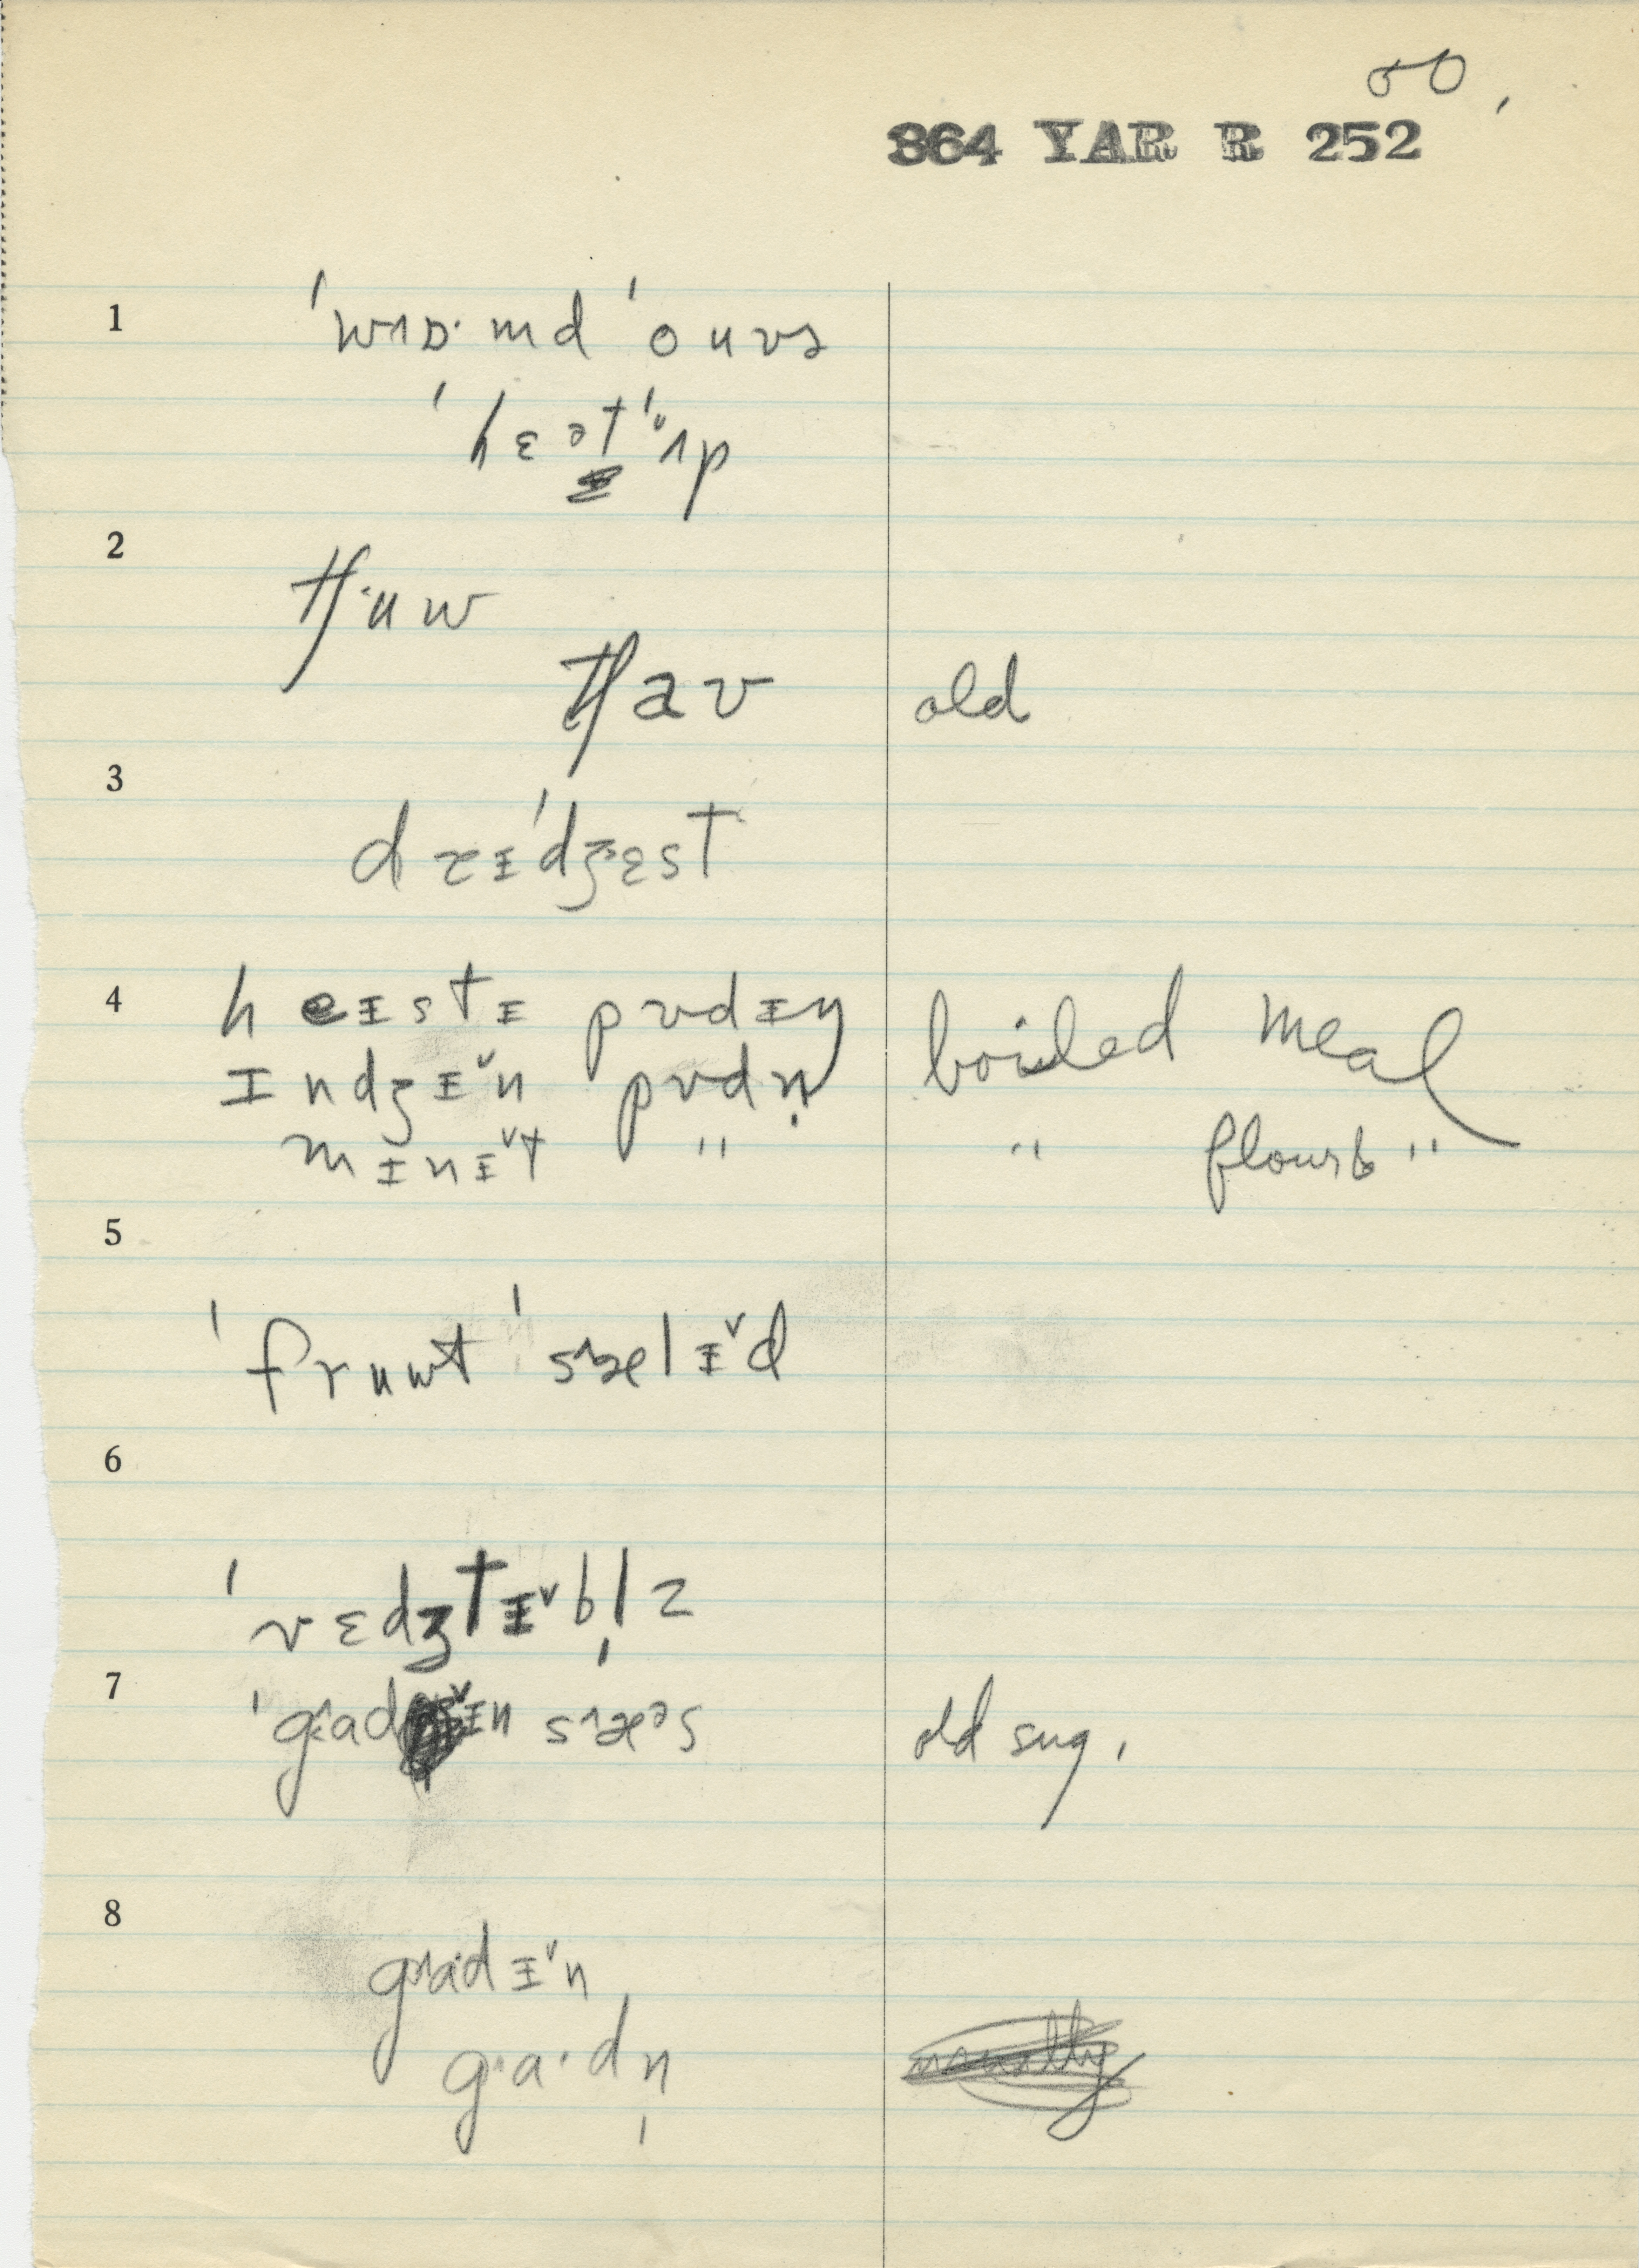 50,
364 YAR R 252
1
ˈwɑ˄ɒ·md ˈouvɚ
ˈhɛətˈʌp
2
tʃ·uw
tʃav old
3
dɪˈdʒɛst
4
heɪstɪ pʊdɪŋ boiled meal
ɪndʒɪ˅n pʊdn̩
mɪnɪ˅t " " flour "
5
ˈfruwt ˈsælɪ˅d
6
ˈvɛdʒtɪ˅bl̩z
7
ˈgadɪ˅n sæəs old sug.
8
gadɪ˅n
g·a·dn̩